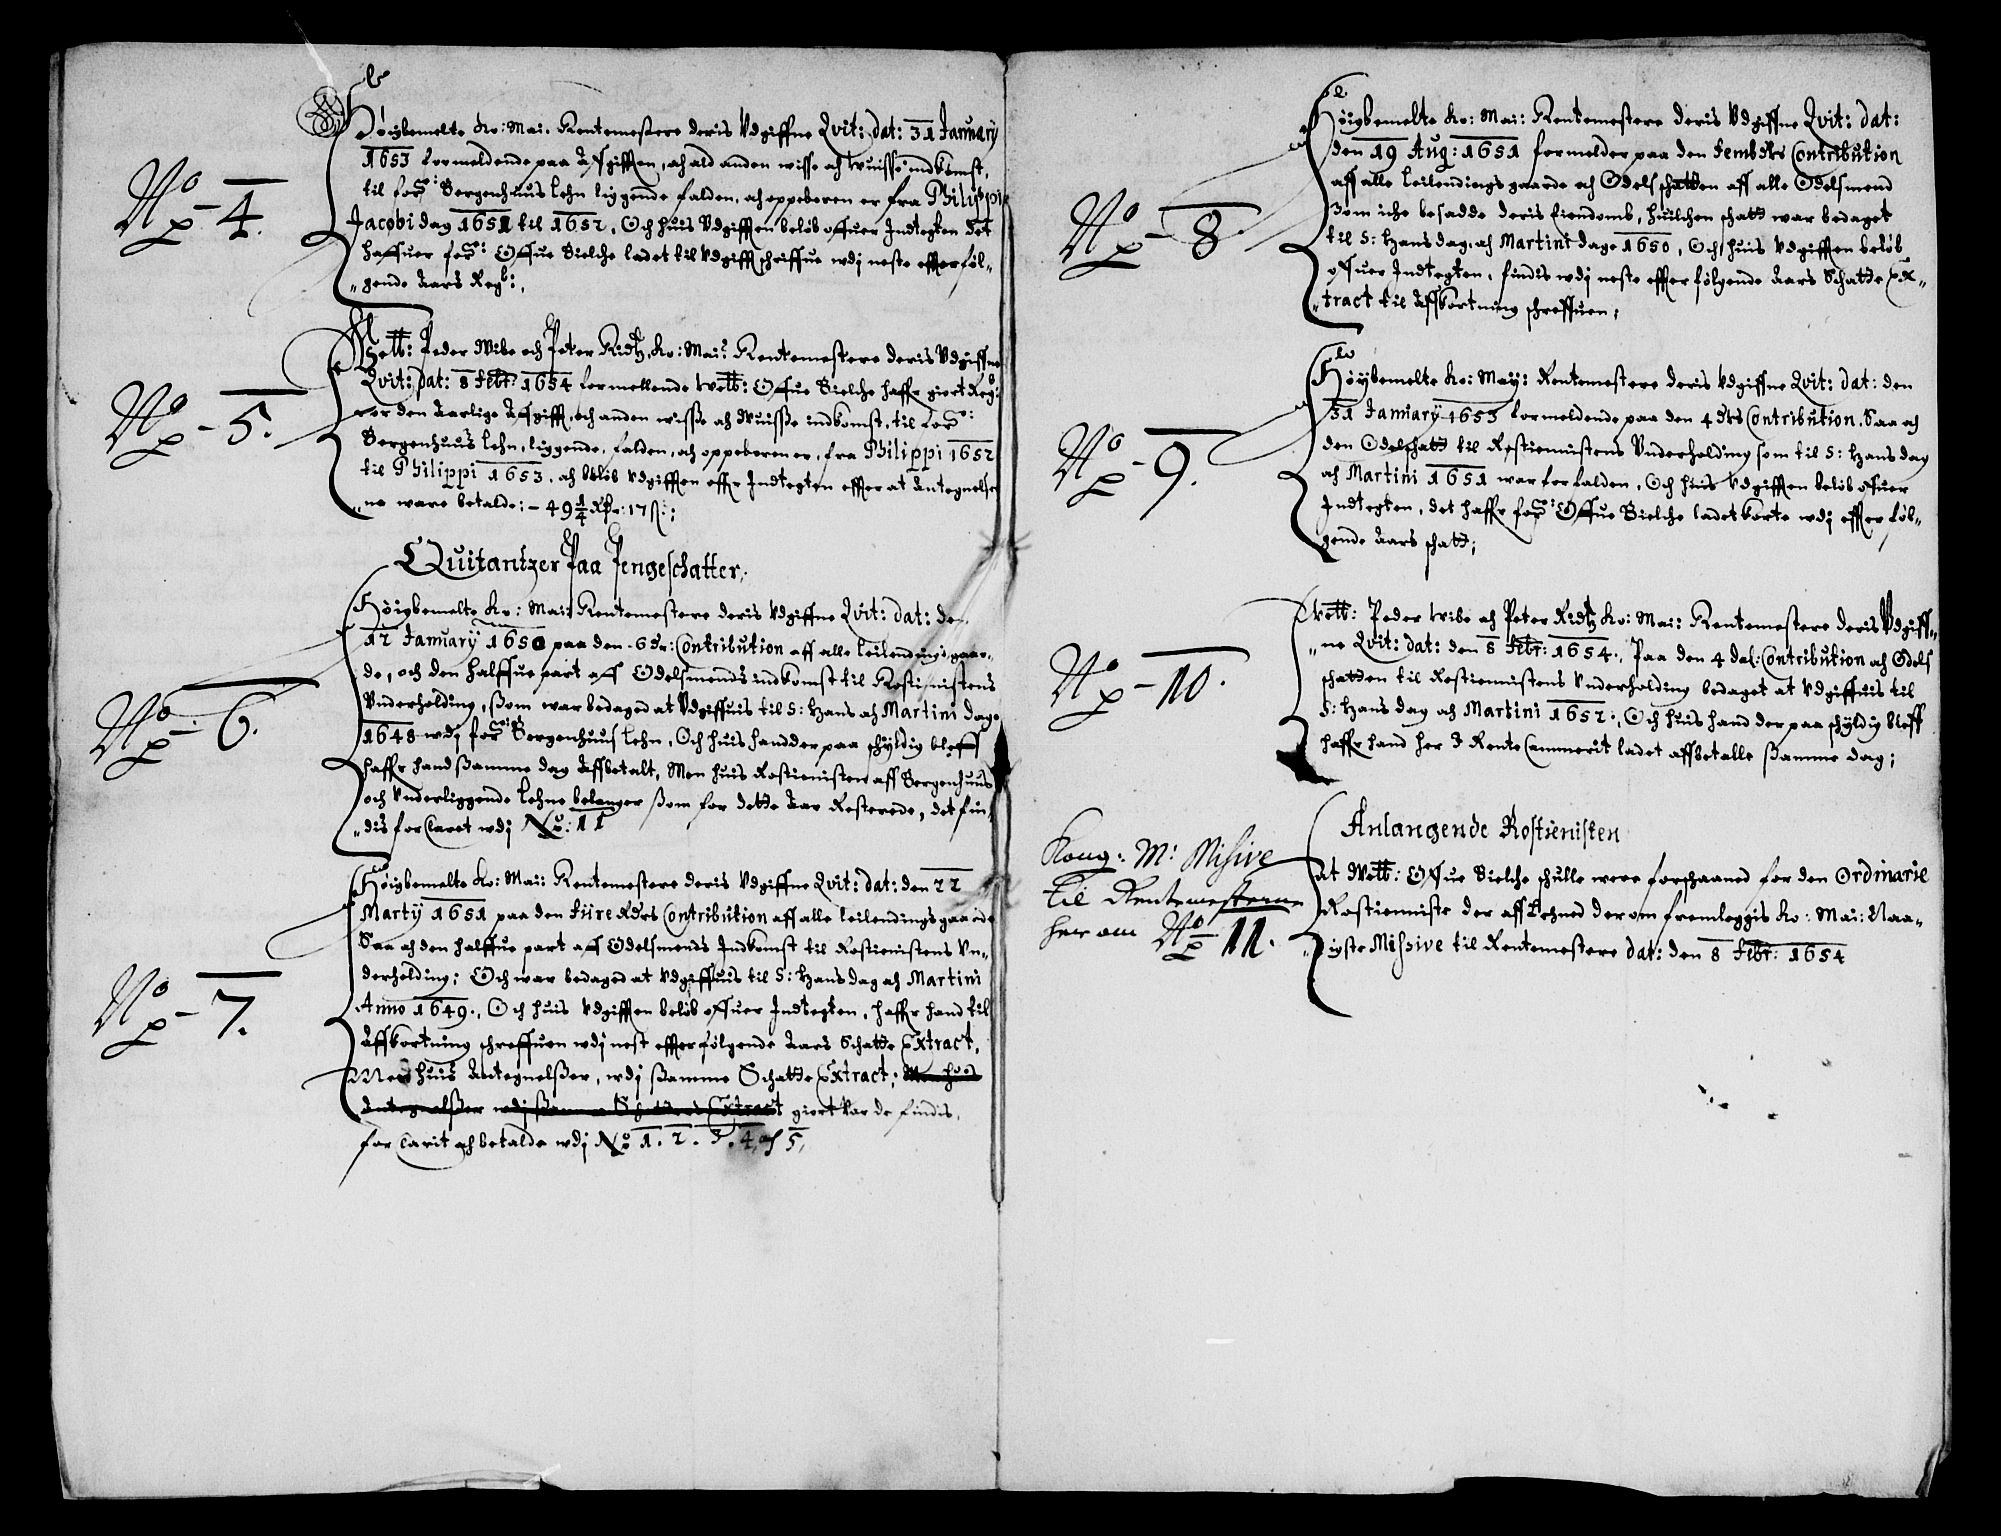 Høigbemelte Ko: Mai: Rentemestere deris Vdgiffne Qvit: dat: 31 January
1653 formeldende paa Afgifften, och ald anden wisse och wuisse indkomst,
til for: Bergenhuus Lehn liggende falden, och oppeboren er fra Philippi
Jacobi dag 1651 til 1652, Och huis Vdgifften beløb offuer Indtegten det
haffuer for: Offue Bielche ladet til Vdgifft schriffue wdj neste effterføl-
"gende Aars Regb:,
No 4.
Welb: Peder Wibe och Peter Ridtz, Ko: Mai: Rentemestere deris Vdgiffne
Qvit: dat: 8 Febr: 1654 formellende Welb: Offue Bielche haffr giort Reg:
for den Aarlige Afgifft, och anden wisße och Wuisße indkomst, til for:
Bergenhuus Lehn, liggende, falden, och oppeboren er, fra Philippi 1652
til Philippi 1653, och beløb Vdgifften effr Indtegten effter at Antegnelser
"ne ware betalde: - 49 1/4 Rdr: 17 ß:;
No 5.
Quitantzer Paa Pengeschatter,
Høigbemelte Ko: Mai: Rentemestere deris Vdgiffne Qvit: dat: den
12 January 1650 paa den 6 dr: Contribution aff alle Leilendings gaar-
de, och den halffue part aff Odelsmends indkomst til Rostienistens
Vnderholding, ßom war bedaged at Vdgiffuis til S: Hans och Martini dage
1648 wdj for: Bergenhuus Lehn, Och huis hand der paa schyldig bleff
haffr hand ßamme dag Affbetalt, Men huis Rostienisten aff Bergenhuus
och Vnderliggende Lehne belanger ßom for dette Aar Resterede, det fin-
"dis forClaret wdj No: 11
No 6.
Høigbemelte Ko: Mai: Rentemestere deris Vdgiffne Qvit: dat: den 22
Martij 1651 paa den fiire Rdrs Contribution aff alle Leilendings gaarde
Saa och den halffue part aff Odelsmends Indkomst til Rostienistens Vn-
derholding; Och war bedaged at Vdgiffuis til S: Hans dag och Martini
Anno 1649., Och huis Vdgifften beløb offuer Indtegten, haffr hand til
Affkortning schreffuen wdj nest effterfølgende Aars Schatte Extract,
Men huis Antegnelßer, wdj ßamme Schatte Extract, Men huis
Antegnelßer wdj ßamme Schattes Extract giort war de findis,
forClarit och betalde wdj No 1. 2. 3. 4, och 5,
No 7.
Høigbemelte Ko: Mai: Rentemestere deris Vdgiffne Qvit: dat:
den 19 Aug: 1651 formelder paa den fembdrs Contribution
aff alle Leilendings gaarde och Odelschatten aff alle Odelsmend
Som iche besadde deris Eiendomb, huilchen schatt war bedaget
til S: Hans dag, och Martini dage 1650, Och huis Vdgifften beløb
offuer Indtegten, findis wdj neste effterfølgende Aars Schatte Ex-
"tract til Affkortning schreffuen;
No 8.
Høybemelte Ko: May: Rentemestere deris Vdgiffne Qvit: dat: den
31 January 1653 formeldende paa den 4 drs Contribution, Saa och
den Odelschatt til Rostiennistens Vnderholding som til S: Hans dag
och Martini 1651 war forfalden, Och huis Vdgifften beløb offuer
Indtegten, det haffr for: Offue Bielche ladet korte wdj effterføl-
gende Aars schatt;
No 9.
Welb: Peder Wibe och Peter Ridtz Ko: Mai: Rentemestere deris Vdgiff-
"ne Qvit: dat: den 8 Febr: 1654., Paa den 4 dal: Contribution och Odels
schatten til Rostiennistens Vnderholding bedaget at Vdgiffuis til
S: Hans dag och Martini 1652., Och huis hand der paa schyldig bleff
haffr hand her I RenteCammerit ladet affbetalle ßamme dag;
No 10.
Anlangende Rostienisten
At Welb: Offue Bielche schulle were forschaaned for den Ordinarie
Rostienniste der aff Lehned derom fremleggis Ko: Mai: Naa-
"digste Missive til Rentemestere dat: den 8 Febr: 1654
Kong: M: Missive
til Rentemesterne
her om No 11.